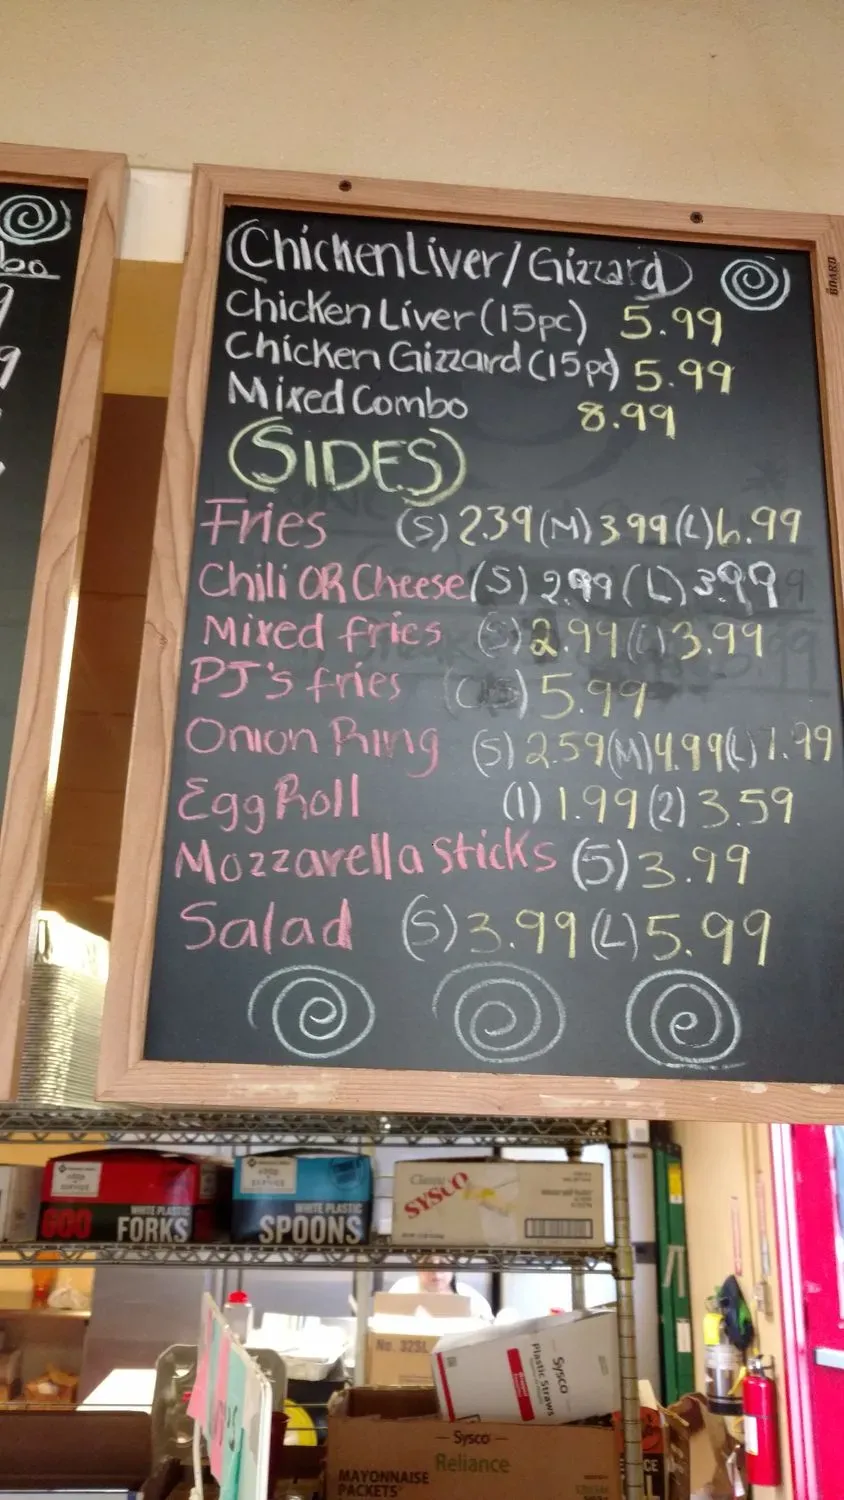 (Chicken Liver/Gizzard)
Chicken Liver (15pc) 5.99
Chicken Gizzard (15pc) 5.99
Mixed Combo 8.99
(SIDES)
Fries (S) 2.39 (M) 3.99 (L) 6.99
Chili OR Cheese (S) 2.99 (L) 3.99
Mixed fries (S) 2.99 (L) 3.99
PJ's fries 5.99
Onion Ring (S) 2.59 (M) 4.99 (L) 7.99
Egg Roll (1) 1.99 (2) 3.59
Mozzarella Sticks (5) 3.99
Salad (S) 3.99 (L) 5.99
BOARD
600 WHITE PLASTIC FORKS
WHITE PLASTIC SPOONS
Classic SYSCO
No. 323L
Sysco
Plastic Straws
Sysco
Reliance
MAYONNAISE
PACKETS